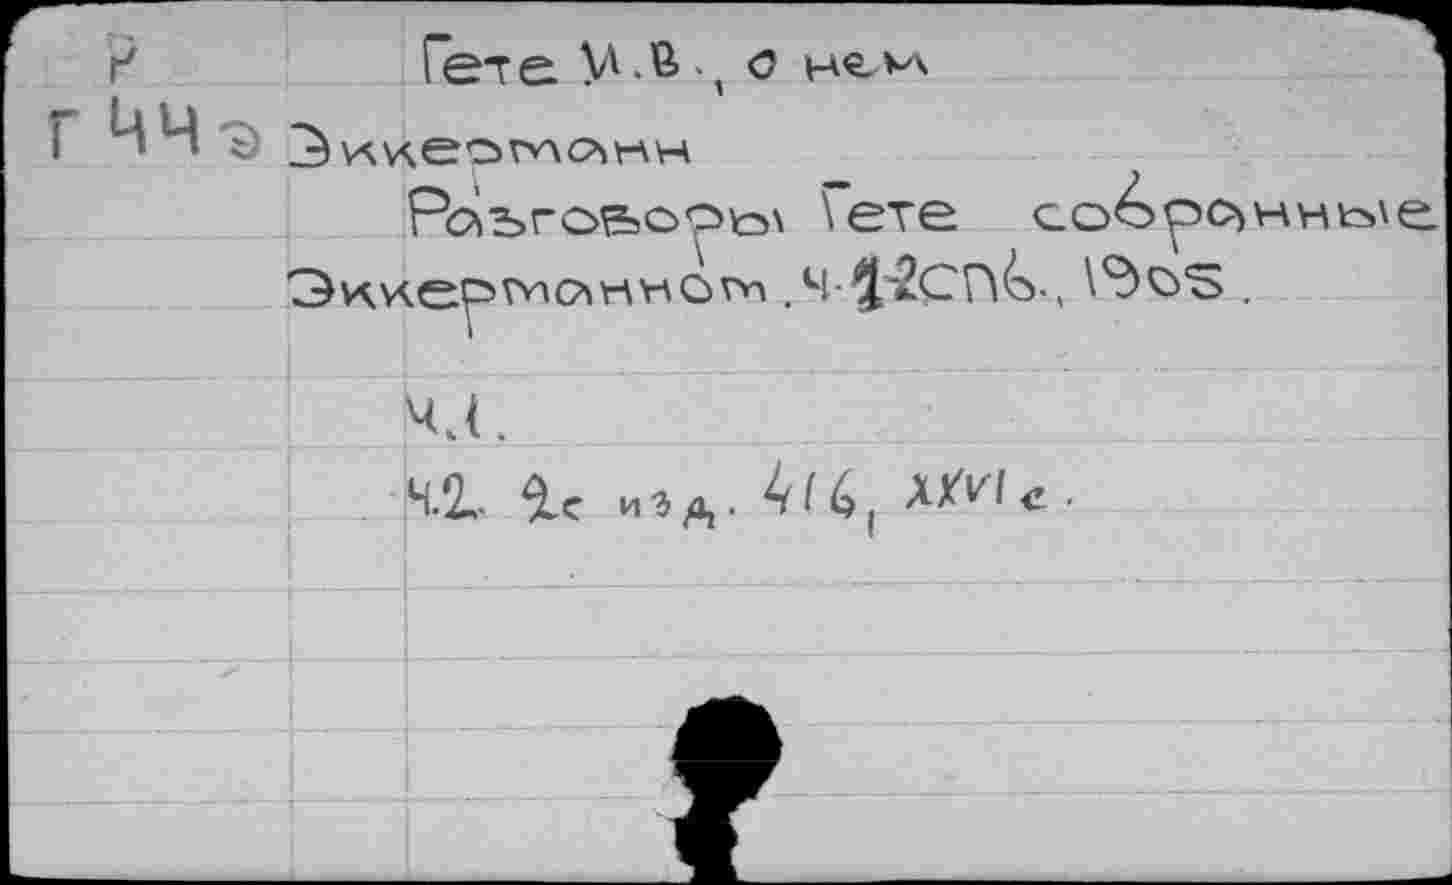 Р Гете И.В., о нем
Г 44 э Эккерманн
Разговоры Гете собранные
Эккерманном. Ч 1-2 СПб., 1905.
Ч.1.
Ч.2. 2е изд. 416, XXVI с.